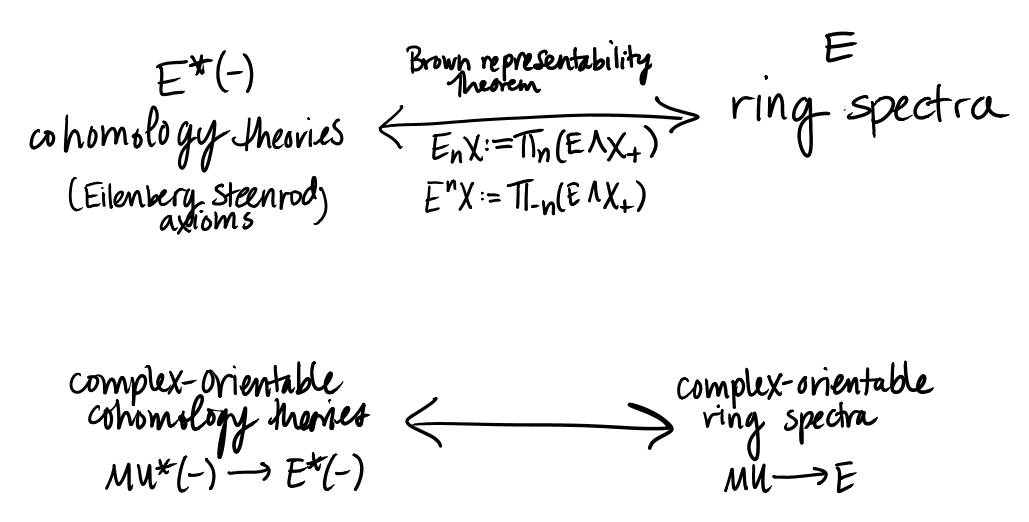 E*(-)
cohomology theories
(Eilenberg Steenrod)
axioms
Brown representability
Theorem
EₙX := πₙ(E ∧ X₊)
EⁿX := π₋ₙ(E ∧ X₊)
E
ring spectra
complex-orientable
cohomology theories
MU*(-) → E*(-)
complex-orientable
ring spectra
MU → E